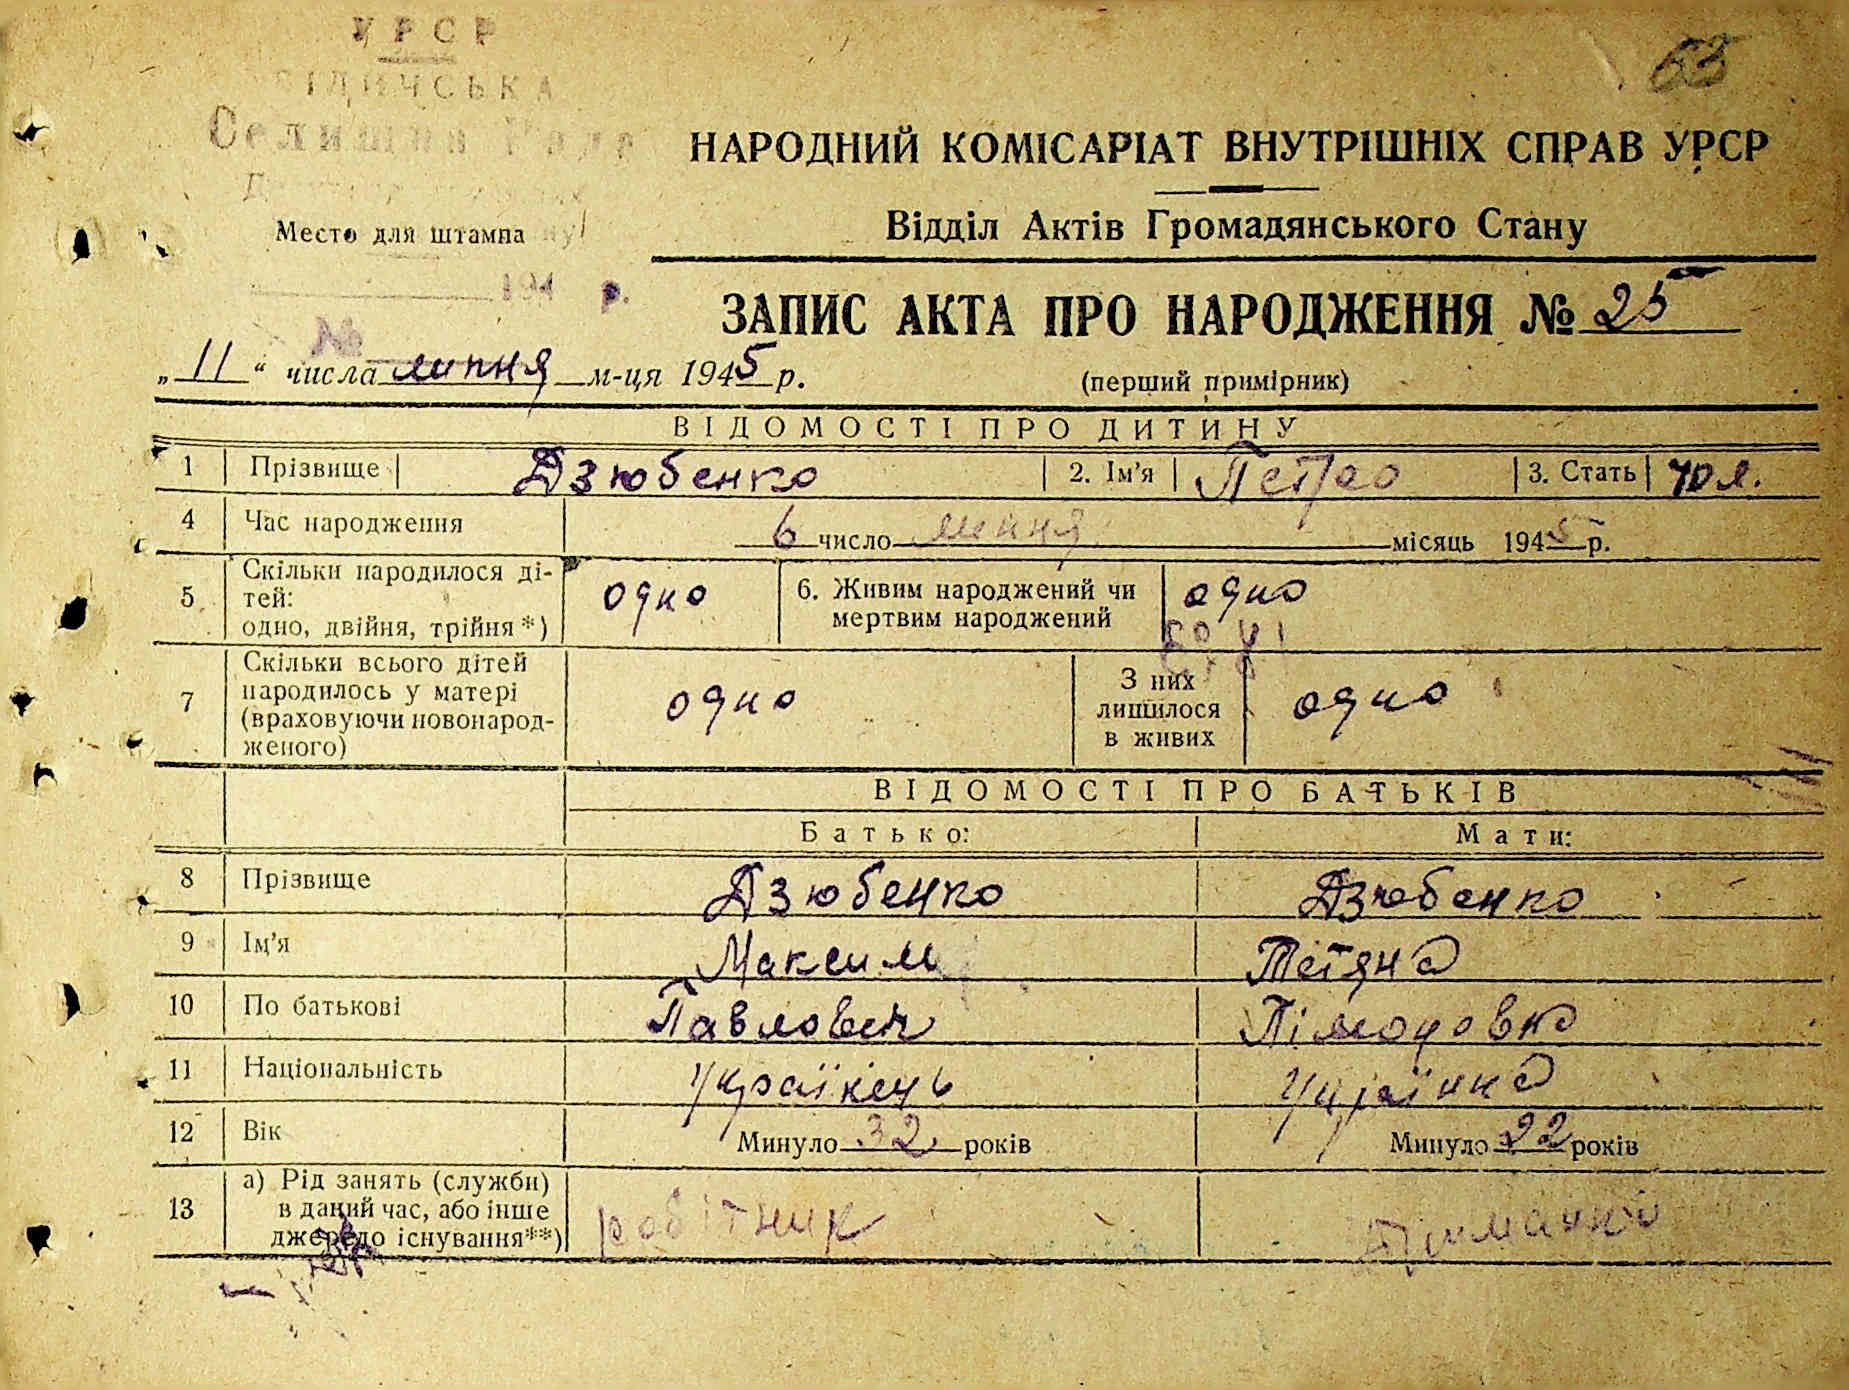 УРСР
63
ІДИЧСЬКА
Селищна Рада
НАРОДНИЙ КОМІСАРІАТ ВНУТРІШНІХ СПРАВ УРСР
Відділ Актів Громадянського Стану
Место для штампа
194 р.
ЗАПИС АКТА ПРО НАРОДЖЕННЯ № 25
№
„11“ числа липня м-ця 1945 р.
(перший примірник)
ВІДОМОСТІ ПРО ДИТИНУ
1 Прізвище Дзюбенко 2. Ім'я Петро 3. Стать чол.
4 Час народження 6 число липня місяць 1945 р.
5 Скільки народилося ді-
тей:
одно, двійня, трійня*) одно
6. Живим народжений чи
мертвим народжений одно
7 Скільки всього дітей
народилось у матері
(враховуючи новонарод-
женого) одно
З них
лишилося
в живих одно
ВІДОМОСТІ ПРО БАТЬКІВ
Батько: Мати:
8 Прізвище Дзюбенко Дзюбенко
9 Ім'я Максим Тетяна
10 По батькові Павлович
11 Національність Українець Українка
12 Вік Минуло 32 років Минуло 22 років
13 а) Рід занять (служби)
в даний час, або інше
джерело існування**) робітник